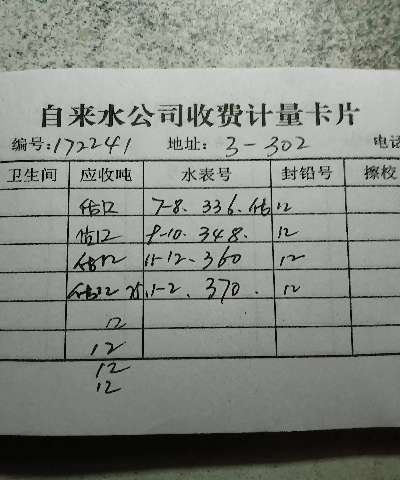 自来水公司收费计量卡片
编号:172241 地址: 3-302 电话
卫生间 应收吨 水表号 封铅号 擦校
估12 7-8. 336. 估 12
估12 9-10. 348. 12
估12 11-12. 360 12
估12 1-2. 370. 12
12
12
12
12